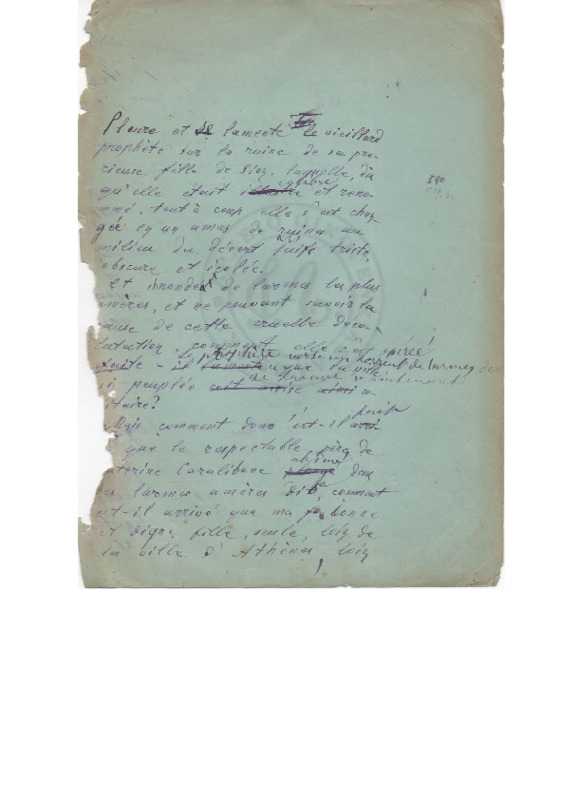 Pleure et se lamente le vieillard
prophète sur la ruine de sa pré-
cieuse fille de Sion, laquelle, dis
qu'elle était illustre et renom-
mé, tout à coup elle s'est chan-
gée en un amas de ruines au
milieu du désert triste
obscure et isolée.
Et inonder de larmes les plus
amères, et ne pouvant savoir la
cause de cette cruelle déso-
lation, comment elle s'est opérée
le prophète verse un torrent de larmes de
suite - il lamente
si peuplée soit assise ainsi
se trouve maintenant
litaire?
Mais comment donc s'est-il
que le respectable père de
Caterine Caralibeve abîmé dans
des larmes amères dise comment
est-il arrivé que ma bonne
et digne fille, seule, loin de
la ville d'Athènes, loin
540